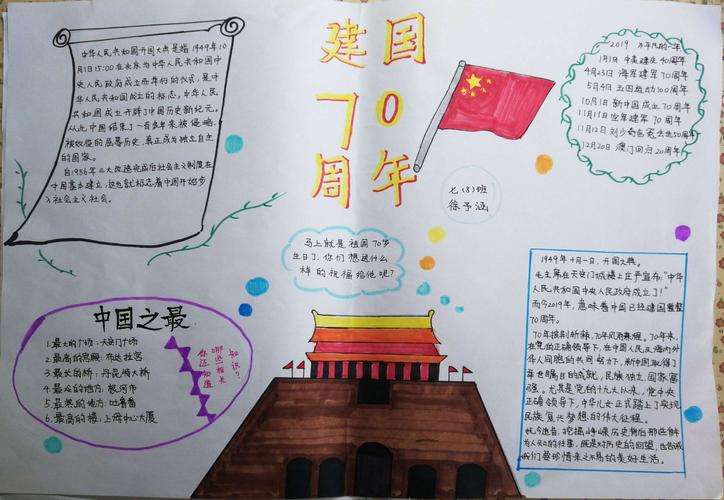 中华人民共和国开国大典是指1949年10
月1日15:00在北京为中华人民共和国中
央人民政府成立而举行的仪式,是中
华人民共和国成立的标志。中华人民
共和国成立开辟了中国历史新纪元。
从此,中国结束了一百多年来被侵略,
被奴役的屈辱历史,真正成为独立自主
的国家。
自1956年三大改造完成后社会主义制度在
中国基本建立,这也就标志着中国开始步
入社会主义社会。
建国
70
周年
2019 不平凡的一年
1月1日 中美建交40周年
4月23日 海军建军70周年
5月4日 五四运动100周年
10月1日 新中国成立70周年
11月11日 空军建军70周年
11月12日 刘少奇冤去世50周年
12月20日 澳门回归20周年
七(8)班
徐予涵
马上就是祖国70岁
生日了,你们想送什么
样的祝福给他呢?
中国之最
1.最大的广场:天安门广场
2.最高的宫殿:布达拉宫
3.最长的桥:丹昆特大桥
4.最冷的地方:漠河市
5.最热的地方:吐鲁番
6.最高的楼:上海中心大厦
你还知道
哪些相关
知识?
1949年十月一日,开国大典。
毛主席在天安门城楼上庄严宣布:"中华
人民共和国中央人民政府成立了!"
而今2019年,意味着中国已经建国整整
70周年。
70年披荆斩棘,70年风雨兼程。70年来,
在党的正确领导下,在中国人民及海内外
华人同胞的共同努力下,新中国取得了
举世瞩目的成就,民族独立,国家富
强。尤其是党的十九大以来,党中央
正确领导下,中华儿女正式踏上了实现
民族复兴梦想的伟大征程。
抚今追昔,挖掘峥嵘历史背后那些鲜
为人知的往事,既是对历史的回望,也告诫
我们要珍惜来之不易的美好生活。